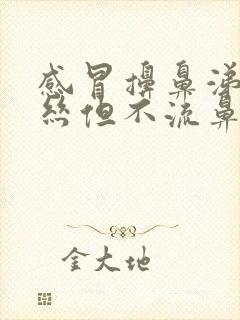 感冒擤鼻涕
丝但不流鼻
金大地